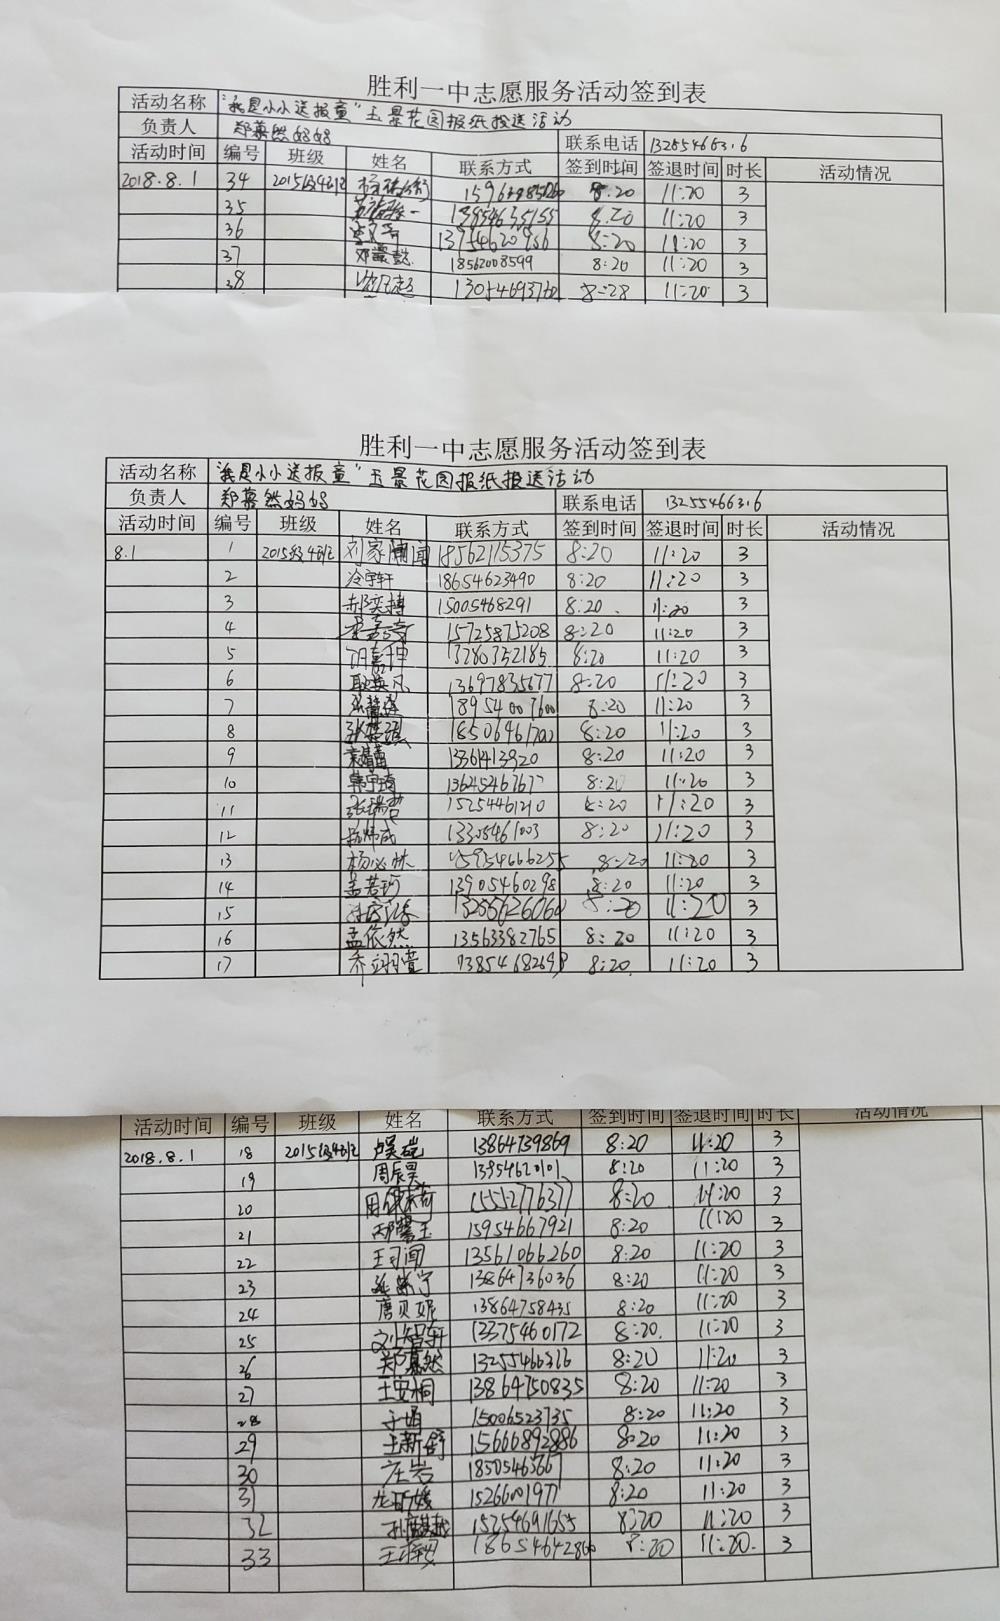 胜利一中志愿服务活动签到表
活动名称 "我是小小送报童"玉景花园报纸投送活动
负责人 郑慕然妈妈 联系电话 13255466316
活动时间 编号 班级 姓名 联系方式 签到时间 签退时间 时长 活动情况
2018.8.1 34 2015级4班 8:20 11:20 3
35 8:20 11:20 3
36 13754620956 8:20 11:20 3
37 邓震懿 18562008599 8:20 11:20 3
38 8:28 11:20 3
胜利一中志愿服务活动签到表
活动名称 "我是小小送报童"玉景花园报纸投送活动
负责人 郑慕然妈妈 联系电话 13255466316
活动时间 编号 班级 姓名 联系方式 签到时间 签退时间 时长 活动情况
8.1 1 2015级4班 刘家闻 18562115375 8:20 11:20 3
2 冷宇轩 18654623490 8:20 11:20 3
3 郝奕搏 15005468291 8:20 11:20 3
4 15725875208 8:20 11:20 3
5 胡嘉坤 13280352185 8:20 11:20 3
6 耿英凡 13697835677 8:20 11:20 3
7 18954007600 8:20 11:20 3
8 18506461702 8:20 11:20 3
9 13361413920 8:20 11:20 3
10 韩宇琦 13645467677 8:20 11:20 3
11 张瑞芸 15254461210 8:20 11:20 3
12 13305461003 8:20 11:20 3
13 杨必林 15954666255 8:20 11:20 3
14 孟若珂 13905460298 8:20 11:20 3
15 13255626060 8:20 11:20 3
16 孟依然 13563382765 8:20 11:20 3
17 乔翊萱 13854682698 8:20 11:20 3
活动时间 编号 班级 姓名 联系方式 签到时间 签退时间 时长 活动情况
2018.8.1 18 2015级4班 卢昊硞 13864739869 8:20 11:20 3
19 周辰昊 13954620101 8:20 11:20 3
20 15552776377 8:20 11:20 3
21 15954667921 8:20 11:20 3
22 王可闻 13561066260 8:20 11:20 3
23 13864736036 8:20 11:20 3
24 唐贝妮 13864758435 8:20 11:20 3
25 刘智轩 13375460172 8:20 11:20 3
26 郑慕然 13255466316 8:20 11:20 3
27 王安桐 13864750835 8:20 11:20 3
28 于婧 15006523735 8:20 11:20 3
29 王新舒 15666892886 8:20 11:20 3
30 庄岩 18505465667 8:20 11:20 3
31 15266001971 8:20 11:20 3
32 15254691655 8:20 11:20 3
33 18654642860 8:20 11:20 3